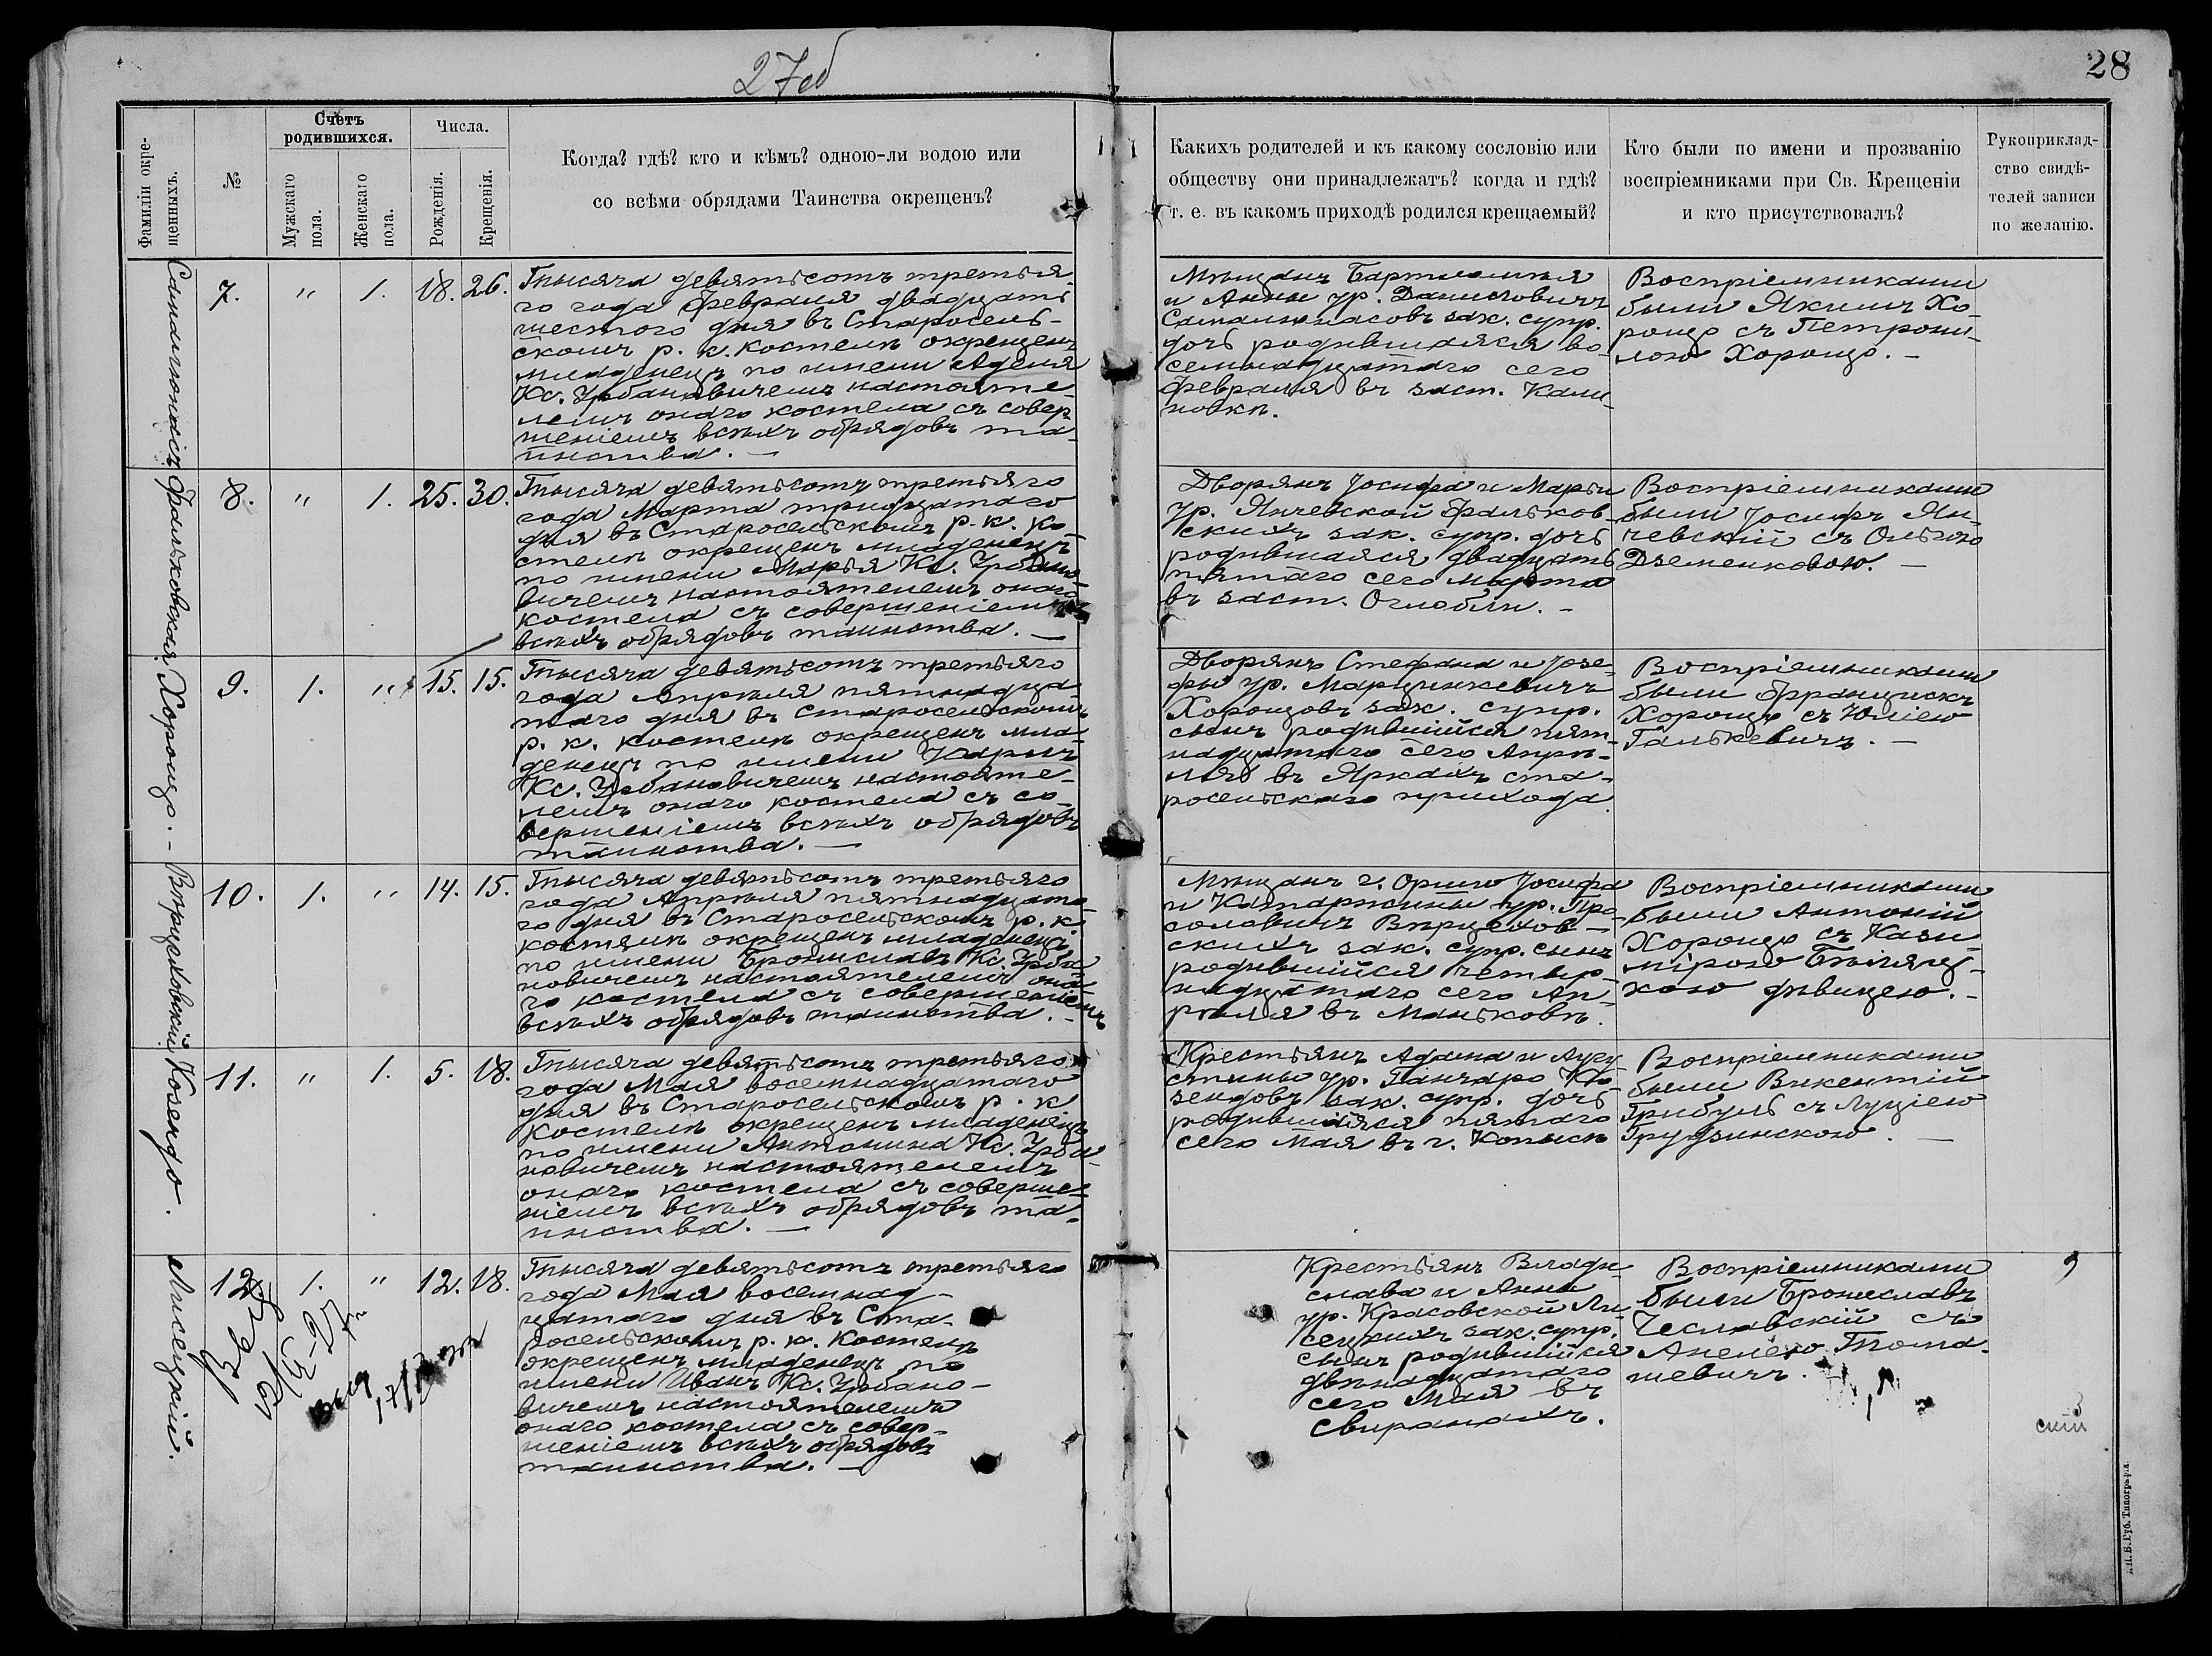 27об
28
Фамиліи окре-
щенныхъ.
№
Счетъ
родившихся.
Мужскаго
пола.
Женскаго
пола.
Числа.
Рожденія.
Крещенія.
Когда? гдѣ? кто и кѣмъ? одною-ли водою или
со всѣми обрядами Таинства окрещенъ?
Какихъ родителей и къ какому сословію или
обществу они принадлежатъ? когда и гдѣ?
т. е. въ какомъ приходѣ родился крещаемый?
Кто были по имени и прозванію
воспріемниками при Св. Крещеніи
и кто присутствовалъ?
Рукоприклад-
ство свидѣ-
телей записи
по желанію.
7. " 1. 18. 26.
Тысяча девятьсотъ третья-
го года Февраля двадцать
шестого дня въ Старосель-
скомъ р. к. костелѣ окрещенъ
младенецъ по имени Аделя
Кс. Урбановичемъ настояте-
лемъ онаго костела съ совер-
шеніемъ всѣхъ обрядовъ та-
инства. —
Мѣщанъ Бартломея
и Анны ур. Данисловичъ
зак. супр.
дочь родившаяся во-
семнадцатаго сего
Февраля въ заст. Кали-
новкѣ.
Воспріемниками
были Якимъ Хо-
рощо съ Петрони-
лою Хорощо. —
Фальковская
8. " 1. 25. 30.
Тысяча девятьсотъ третьяго
года Марта тридцатаго
дня въ Старосельскомъ р. к. ко-
стелѣ окрещенъ младенецъ
по имени Марья Кс. Урбано-
вичемъ настоятелемъ онаго
костела съ совершеніемъ
всѣхъ обрядовъ таинства. —
Дворянъ Іосифа и Марьи
ур. Янчевской Фальков-
скихъ зак. супр. дочь
родившаяся двадцать
пятаго сего Марта
въ заст. Оглобли. —
Воспріемниками
были Іосифъ Ян-
чевскій съ Ольгою
Дземенковою. —
Хорощо. —
9. 1. " 15. 15.
Тысяча девятьсотъ третьяго
года Апрѣля пятнадца-
таго дня въ Старосельскомъ
р. к. костелѣ окрещенъ мла-
денецъ по имени Кароль
Кс. Урбановичемъ настояте-
лемъ онаго костела съ со-
вершеніемъ всѣхъ обрядовъ
таинства. —
Дворянъ Стефана и Юзе-
фы ур. Марцинкевичъ
Хорощовъ зак. супр.
сынъ родившійся пят-
надцатаго сего Апрѣ-
ля въ Яркахъ ста-
росельскаго прихода.
Воспріемниками
были Францискъ
Хорощо съ Юліею
Галькевичъ. —
Вержеховскій
10. 1. " 14. 15.
Тысяча девятьсотъ третьяго
года Апрѣля пятнадцата-
го дня въ Старосельскомъ р. к.
костелѣ окрещенъ младенецъ
по имени Брониславъ Кс. Урба-
новичемъ настоятелемъ она-
го костела съ совершеніемъ
всѣхъ обрядовъ таинства. —
Мѣщанъ г. Орши Іосифа
и Катаржины ур. Про-
соловичъ
скихъ зак. супр. сынъ
родившійся четыр-
надцатаго сего Ап-
рѣля въ Маньковѣ.
Воспріемниками
были Антоній
Хорощо съ Кази-
мірою Бѣляц-
кою дѣвицею. —
Козендо.
11. " 1. 5. 18.
Тысяча девятьсотъ третьяго
года Мая восемнадцатаго
дня въ Старосельскомъ р. к
костелѣ окрещенъ младенецъ
по имени Антонина Кс. Урба-
новичемъ настоятелемъ
онаго костела съ соверше-
ніемъ всѣхъ обрядовъ та-
инства. —
Крестьянъ Адама и Авгу-
стины ур. Ганчаро Ко-
зендовъ зак. супр. дочь
родившаяся пятаго
сего Мая въ г. Копысѣ
Воспріемниками
были Викентій
Грибуль съ Луціею
Грудзинскою. —
Лисецкій.
12. 1. " 12. 18.
Тысяча девятьсотъ третьяго
года Мая восемнад-
цатаго дня въ Ста-
росельскомъ р. к. костелѣ
окрещенъ младенецъ по
имени Иванъ Кс. Урбано-
вичемъ настоятелемъ
онаго костела съ совер-
шеніемъ всѣхъ обрядовъ
таинства. —
Крестьянъ Влади-
слава и Анны
ур. Красовской Ли-
сецкихъ зак. супр.
сынъ родившійся
двѣнадцатаго
сего Мая въ
Свиранахъ.
Воспріемниками
были Брониславъ
Чеславскій съ
Анелею Тома-
шевичъ.
скій